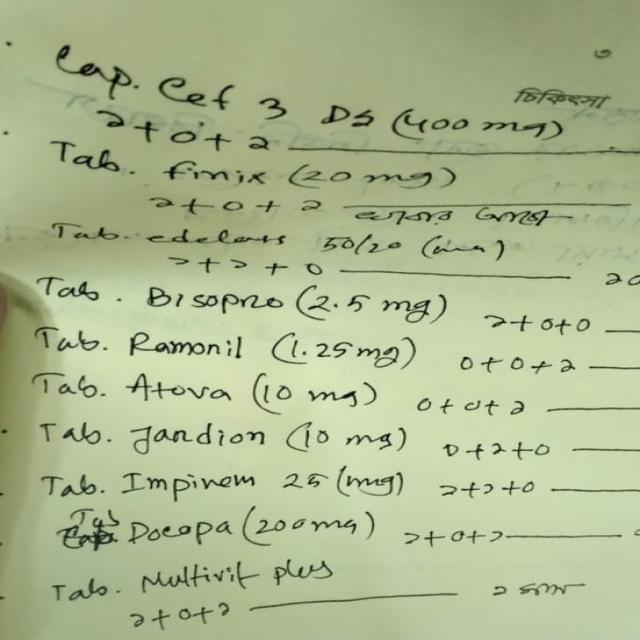 ৩
চিকিৎসা
Cap. Cef 3 DS (400 mg)
১+০+১
Tab. Finix (20 mg)
১+০+১ খাবার আগে
Tab. edeloss 50/20 (mg)
১+১+০
Tab. Bisopro (2.5 mg) ১+০+০
Tab. Ramonil (1.25mg) ০+০+১
Tab. Atova (10 mg) ০+০+১
Tab. Jardion (10 mg) ০+১+০
Tab. Impinem 25 (mg) ১+১+০
Tab Docopa (200mg) ১+০+১
Tab. Multivit plus
১+০+১ ১ মাস